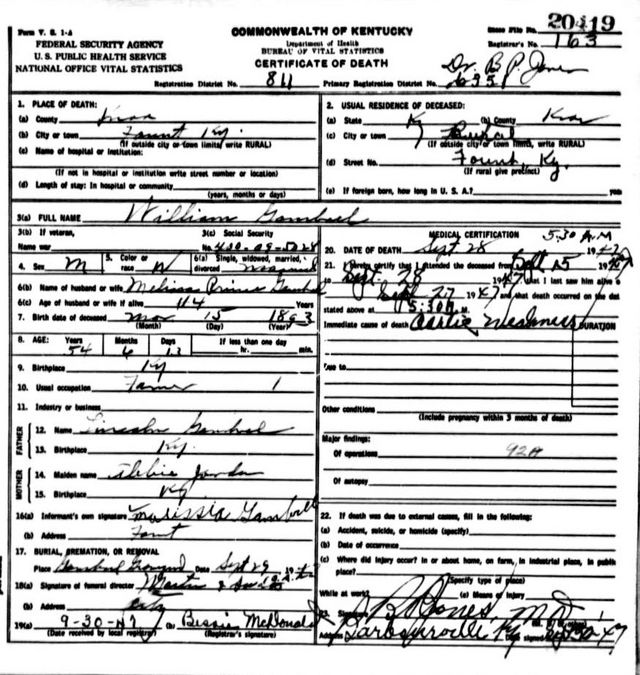 Form V. S. 1-A
FEDERAL SECURITY AGENCY
U. S. PUBLIC HEALTH SERVICE
NATIONAL OFFICE VITAL STATISTICS
COMMONWEALTH OF KENTUCKY
Department of Health
BUREAU OF VITAL STATISTICS
CERTIFICATE OF DEATH
State File No. 20419
Registrar's No. 163
Dr. B. P. Jones
Registration District No. 811 Primary Registration District No.
1. PLACE OF DEATH:
(a) County Knox
(b) City or town Fount Ky.
(If outside city or town limits, write RURAL)
(c) Name of hospital or institution:
(If not in hospital or institution write street number or location)
(d) Length of stay: In hospital or community
(years, months or days)
2. USUAL RESIDENCE OF DECEASED:
(a) State Ky (b) County Knox
(c) City or town Rural
(If outside city or town limits, write RURAL)
(d) Street No. Fount, Ky.
(If rural give precinct)
(e) If foreign born, how long in U. S. A.?
3(a) FULL NAME William Gambrel
3(b) If veteran,
Name war
3(c) Social Security
No. 400-09-5228
4. Sex M 5. Color or
race W 6(a) Single, widowed, married,
divorced married
6(b) Name of husband or wife Melissa Prince Gambrel
6(c) Age of husband or wife if alive 44 Years
7. Birth date of deceased Mar 15 1893
(Month) (Day) (Year)
8. AGE: Years 54 Months 6 Days 13 If less than one day
hr. min.
9. Birthplace Ky
10. Usual occupation Farmer
11. Industry or business
FATHER
12. Name Lincoln Gambrel
13. Birthplace Ky.
MOTHER
14. Maiden name
15. Birthplace Ky.
16(a) Informant's own signature Gambrell
(b) Address Fount
17. BURIAL, CREMATION, OR REMOVAL
Place Gambrel Date Sept 29
18(a) Signature of funeral director Martin &
(b) Address City
19(a) 9-30-47 (b) Bessie McDonald
(Date received by local registry) (Registrar's signature)
MEDICAL CERTIFICATION 5:30 A.M
20. DATE OF DEATH Sept 28 1947
21. I hereby certify that I attended the deceased from 1947
Sept. 28 1947 that I last saw him alive
Sept 27 1947 and that death occurred on the date
stated above at 5:30 A. M.
Immediate cause of death Weakness DURATION
Due to
Other conditions
(Include pregnancy within 3 months of death)
Major findings:
Of operations 92A
Of autopsy
22. If death was due to external causes, fill in the following:
(a) Accident, suicide, or homicide (specify)
(b) Date of occurrence
(c) Where did injury occur? In or about home, on farm, in industrial place, in public
place?
(Specify type of place)
While at work? (e) Means of injury
23. Signature B P Jones, M D
Address Barbourville, Ky 47